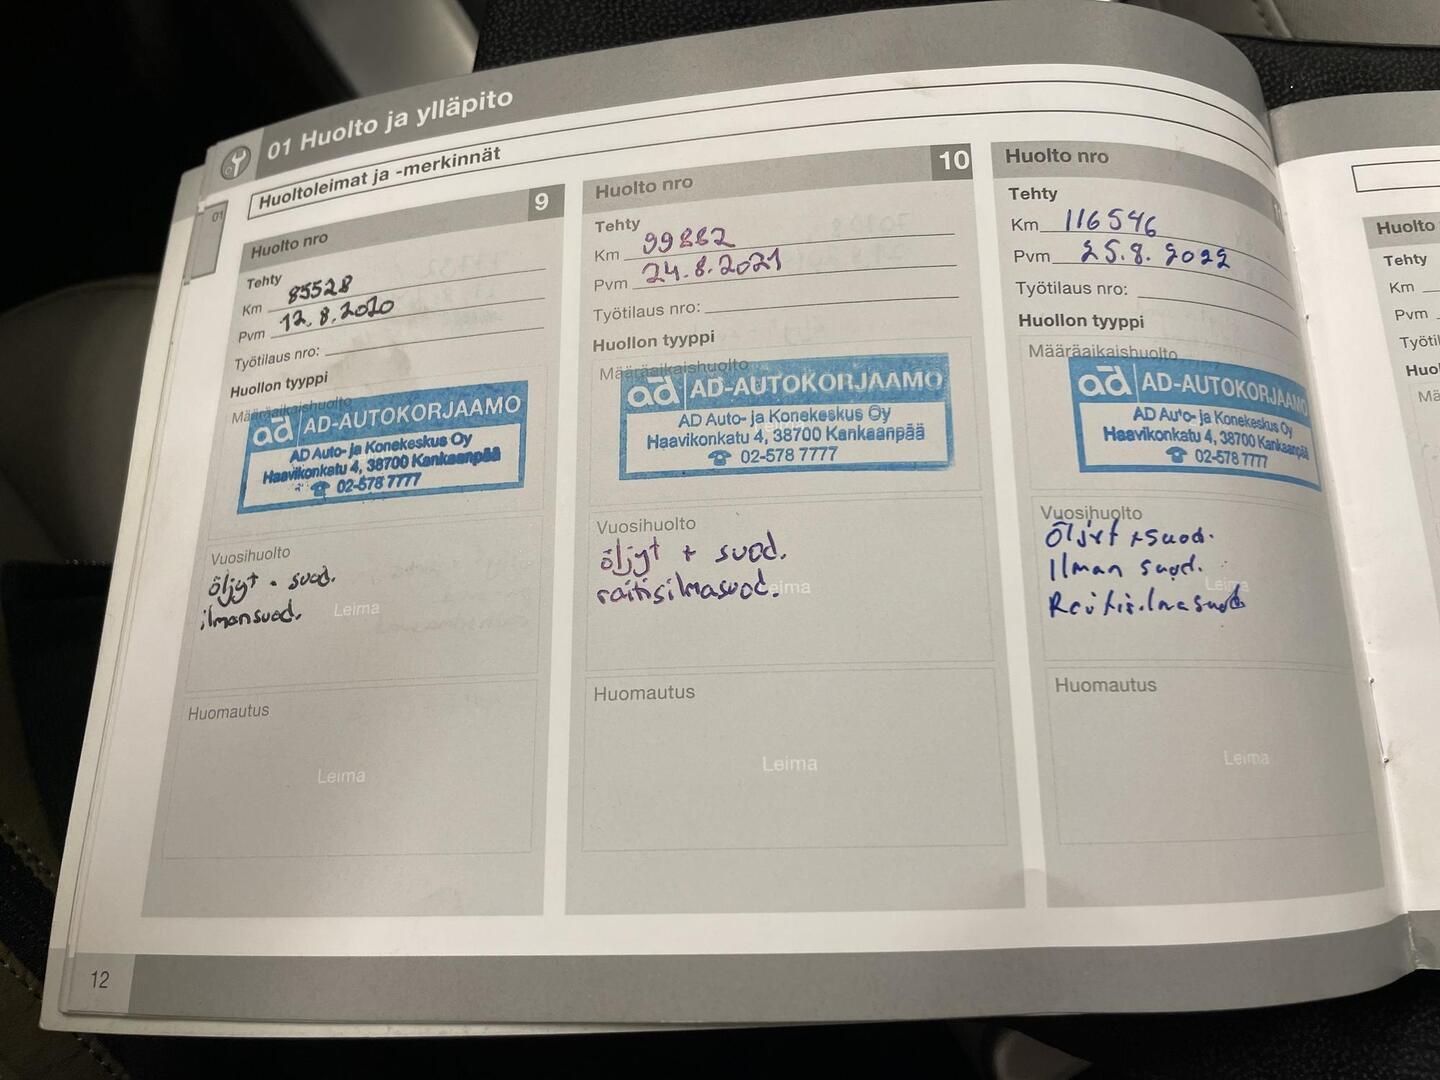 01 Huolto ja ylläpito
Huoltoleimat ja -merkinnät
01
Huolto nro 9
Tehty
Km 85528
Pvm 12.8.2020
Työtilaus nro:
Huollon tyyppi
Määräaikaishuolto
ad AD-AUTOKORJAAMO
AD Auto- ja Konekeskus Oy
Haavikonkatu 4, 38700 Kankaanpää
☎ 02-578 7777
Vuosihuolto
öljyt + suod.
ilmansuod.
Leima
Huomautus
Leima
Huolto nro 10
Tehty
Km 99882
Pvm 24.8.2021
Työtilaus nro:
Huollon tyyppi
Määräaikaishuolto
ad AD-AUTOKORJAAMO
AD Auto- ja Konekeskus Oy
Haavikonkatu 4, 38700 Kankaanpää
☎ 02-578 7777
Vuosihuolto
öljyt + suod.
raitisilmasuod.
Leima
Huomautus
Leima
Huolto nro
Tehty
Km 116546
Pvm 25.8.2022
Työtilaus nro:
Huollon tyyppi
Määräaikaishuolto
ad AD-AUTOKORJAAMO
AD Auto- ja Konekeskus Oy
Haavikonkatu 4, 38700 Kankaanpää
☎ 02-578 7777
Vuosihuolto
Öljyt + suod.
Ilman suod.
Raitisilmasuod
Leima
Huomautus
Leima
12
Huolto
Tehty
Km
Pvm